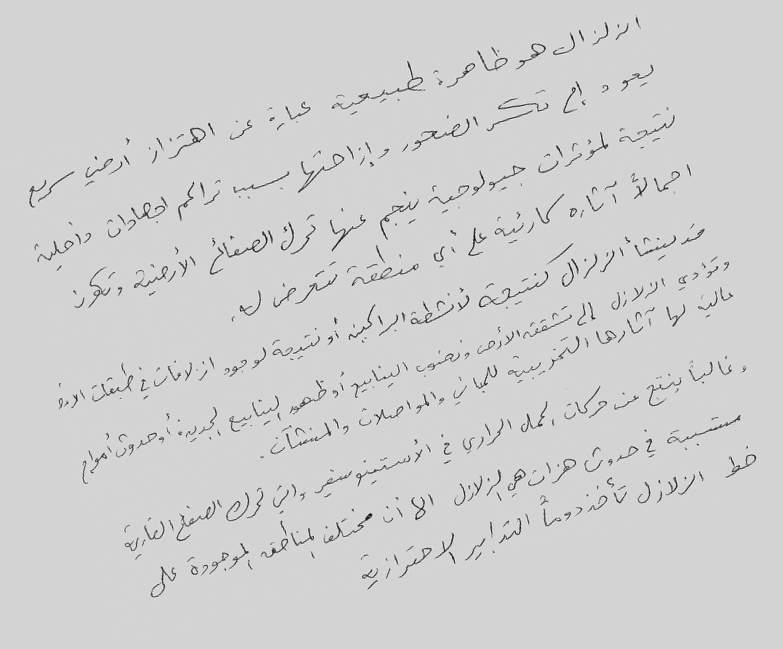 الزلزال هو ظاهرة طبيعية عبارة عن اهتزاز أرضي سريع
يعود إلى تكسر الصخور وإزاحتها بسبب تراكم اجهادات داخلية
نتيجة لمؤثرات جيولوجية ينجم عنها تحرك الصفائح الأرضية وتكون
اجمالاً آثاره كارثية على أي منطقة تتعرض له.
قد ينشأ الزلزال كنتيجة لأنشطة البراكين أو نتيجة لوجود انزلاقات في طبقات الأرض
وتؤدي الزلازل إلى تشقق الأرض ونضوب الينابيع أو ظهور الينابيع الجديدة أو حدوث أمواج
عالية لها آثارها التخريبية للمباني والمواصلات والمنشآت.
وغالباً ينتج عن حركات الحمل الحراري في الأستينوسفير والتي تحرك الصفائح القارية
متسببة في حدوث هزات هي الزلازل الا أن مختلف المناطق الموجودة على
خط الزلازل تأخذ دوماً التدابير الاحترازية